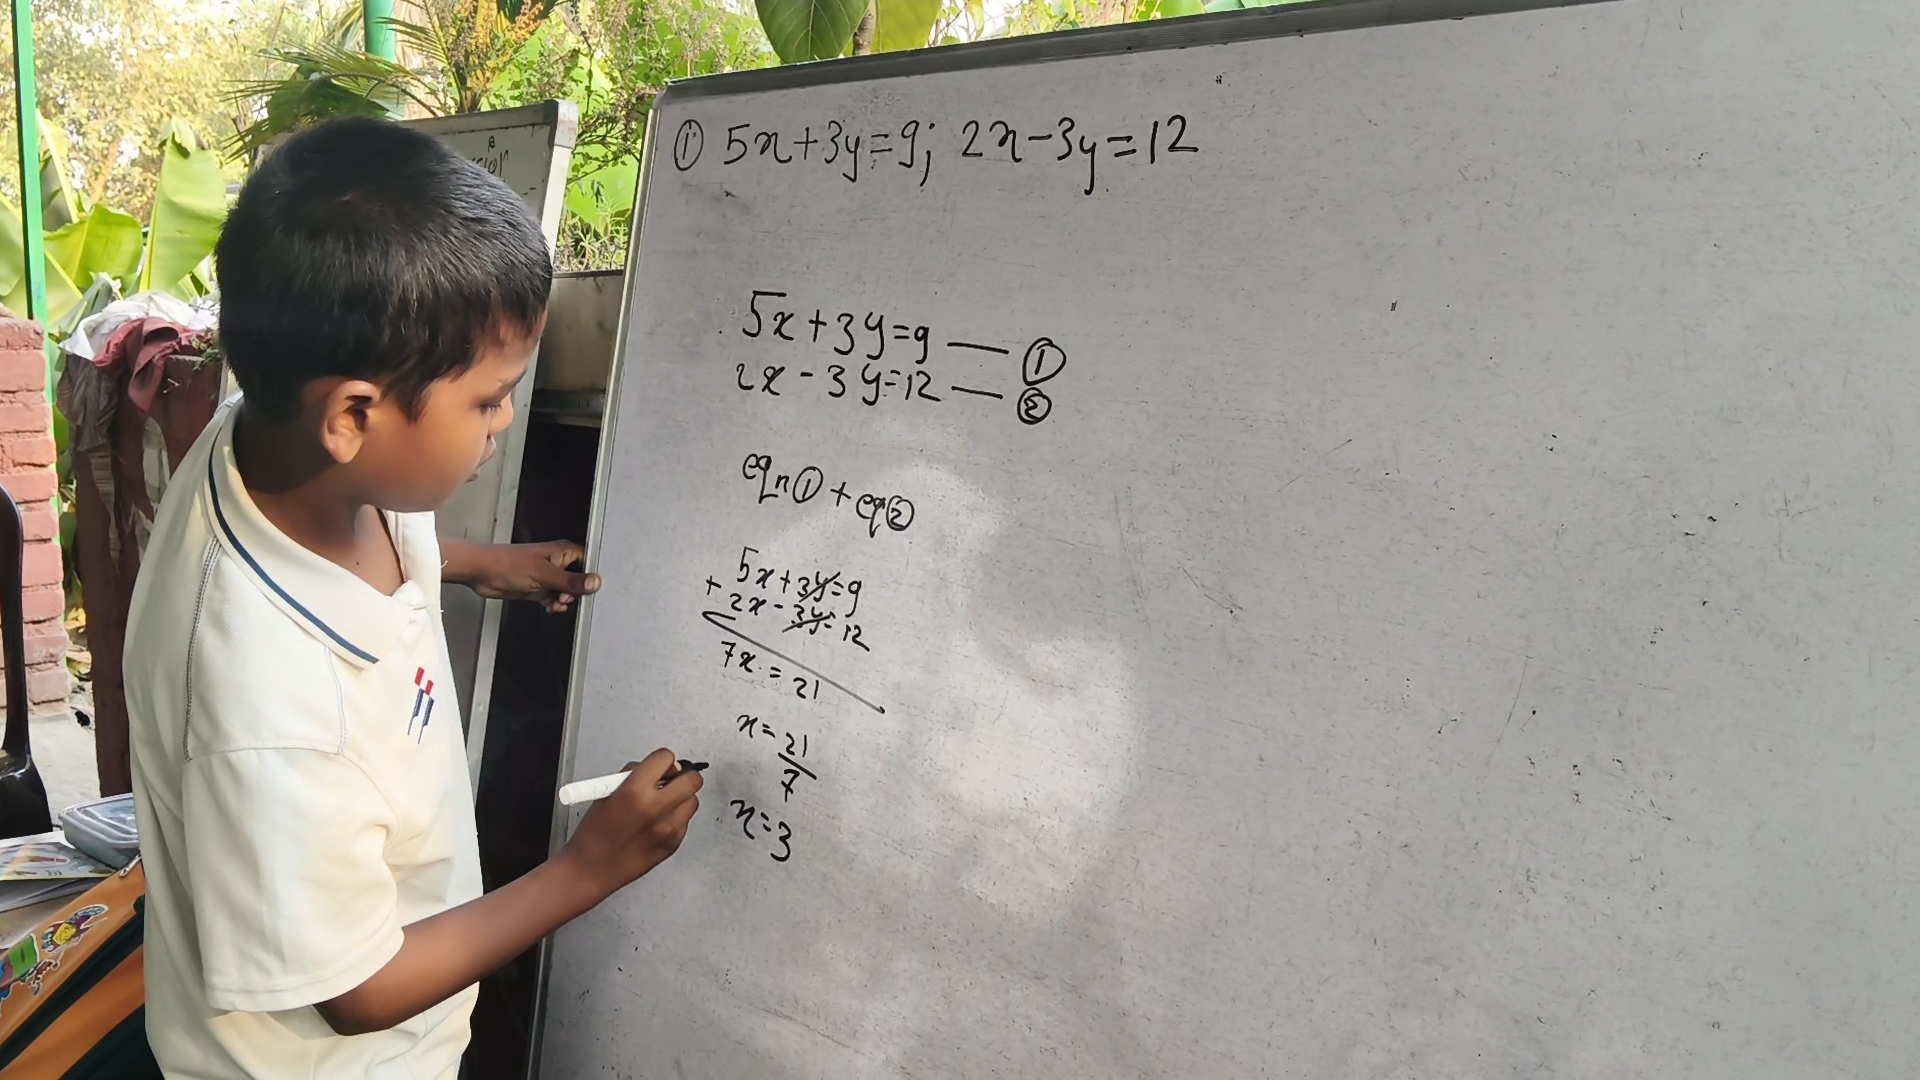 ① 5x+3y=9; 2x-3y=12
5x+3y=9 — ①
2x-3y=12 — ②
eqn① + eq②
5x+3y=9
+ 2x-3y=12
7x = 21
x=21/7
x=3